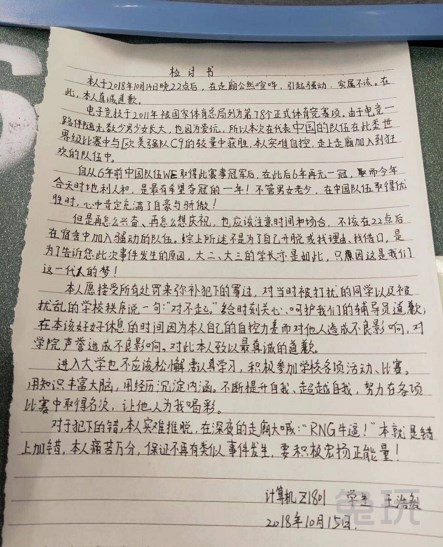 检讨书
本人于2018年10月14日晚22点后，在走廊公然喧哗，引起骚动，实属不该。在
此，本人真诚道歉。
电子竞技于2011年被国家体育总局列为第78个正式体育竞赛项。由于电竞一
路伴随无数少男少女长大，也因为爱玩，所以本次在代表中国的队伍在此类世
界级比赛中与欧美强队C9的较量中获胜，本人实难自控，走上走廊加入到狂
欢的队伍中。
自从6年前中国队伍WE取得此赛事冠军后，在此后6年再无一冠，而今年
合天时地利人和，是最有希望夺冠的一年！不管男女老少，在中国队伍取得优
性时，心中肯定充满了自豪与骄傲！
但是再怎么兴奋、再怎么想庆祝，也应该注意时间和场合，不该在22点后
在宿舍中加入骚动的队伍。综上所述不是为了自己开脱或找理由，找借口，是
为了告诉您此次事件发生的原因，大二、大三的学长亦是如此，只原因这是我们
这一代人的梦！
本人愿接受所有处罚来弥补犯下的罪过，对当时被打扰的同学以及被
扰乱的学校秩序说一句："对不起"。给时刻关心、呵护我们的辅导员道歉；
在本该好好休息的时间因为本人自己的自控力差而对他人造成不良影响，对
学院声誉造成不良影响，对此本人致以最真诚的道歉。
进入大学也不应该松懈，需认真学习，积极参加学校各项活动、比赛。
用知识丰富大脑，用经历沉淀内涵。不断提升自我，超越自我，努力在各项
比赛中取得名次，让他人为我喝彩。
对于犯下的错，本人实难推脱，在深夜的走廊大喊："RNG牛逼！"本就是错
上加错，本人痛苦万分，保证不再有类似事件发生，要积极宏扬正能量！
计算机Z1801 学生 王浩
2018年10月15日.
兔玩